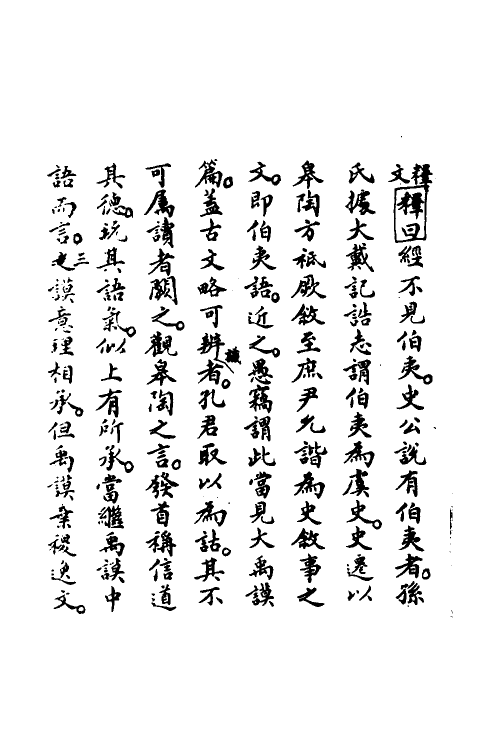 釋文釋曰經不見伯夷。史公說有伯夷者。孫
氏據大戴記誥志謂伯夷為虞史。史遷以
皋陶方祗厥敘至庶尹允諧為史敘事之
文。即伯夷語。近之。愚竊謂此當見大禹謨
篇。蓋古文略可辨識者。孔君取以為詁。其不
可屬讀者闕之。觀皋陶之言。發首稱信道
其德。玩其語氣。似上有所承。當繼禹謨中
語而言。三謨意理相承。但禹謨棄稷逸文。